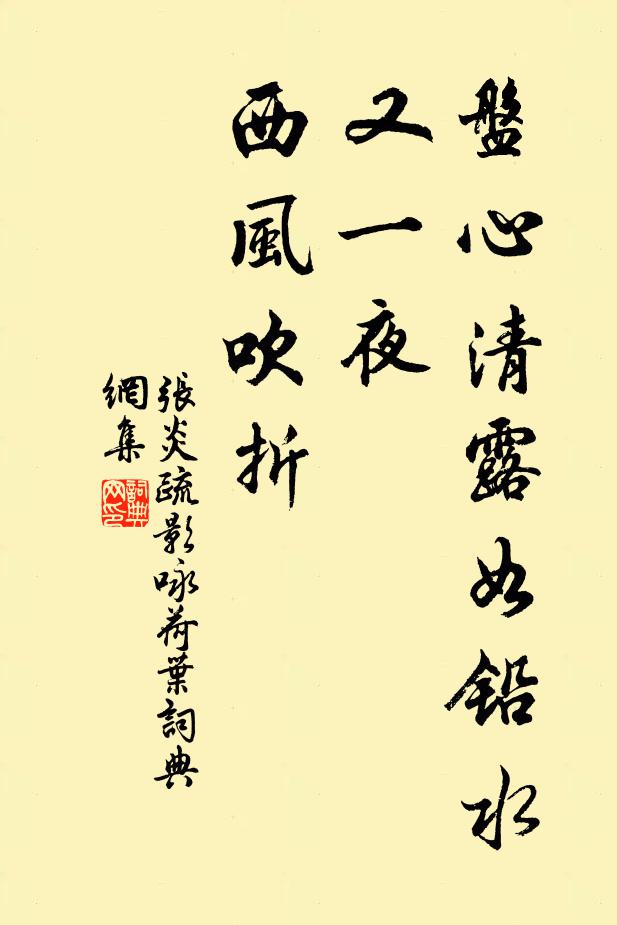 盤心清露如鉛水
又一夜
西風吹折
張炎疏影咏荷葉詞典
網集
詞典
网印